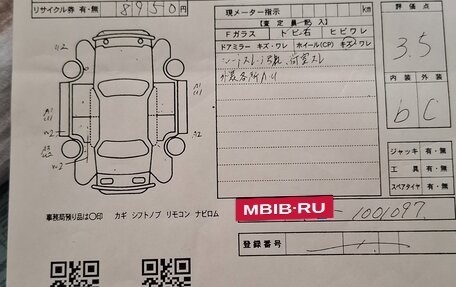 リサイクル券 有・無 8950円
現メーター指示 km
【査定員記入】
Fガラス トビ石 ヒビワレ
ドアミラー キズ・ワレ ホイール(CP) キズ・ワレ
シートスレ
評価点
3.5
内装 外装
b C
U2
A1
U1
A1
U1
W2
A3
U2
W2
A2
ジャッキ 有・無
工具 有・無
スペアタイヤ 有・無
事務局預り品は〇印 カギ シフトノブ リモコン ナビロム
MBIB-RU
-1001097
登録番号